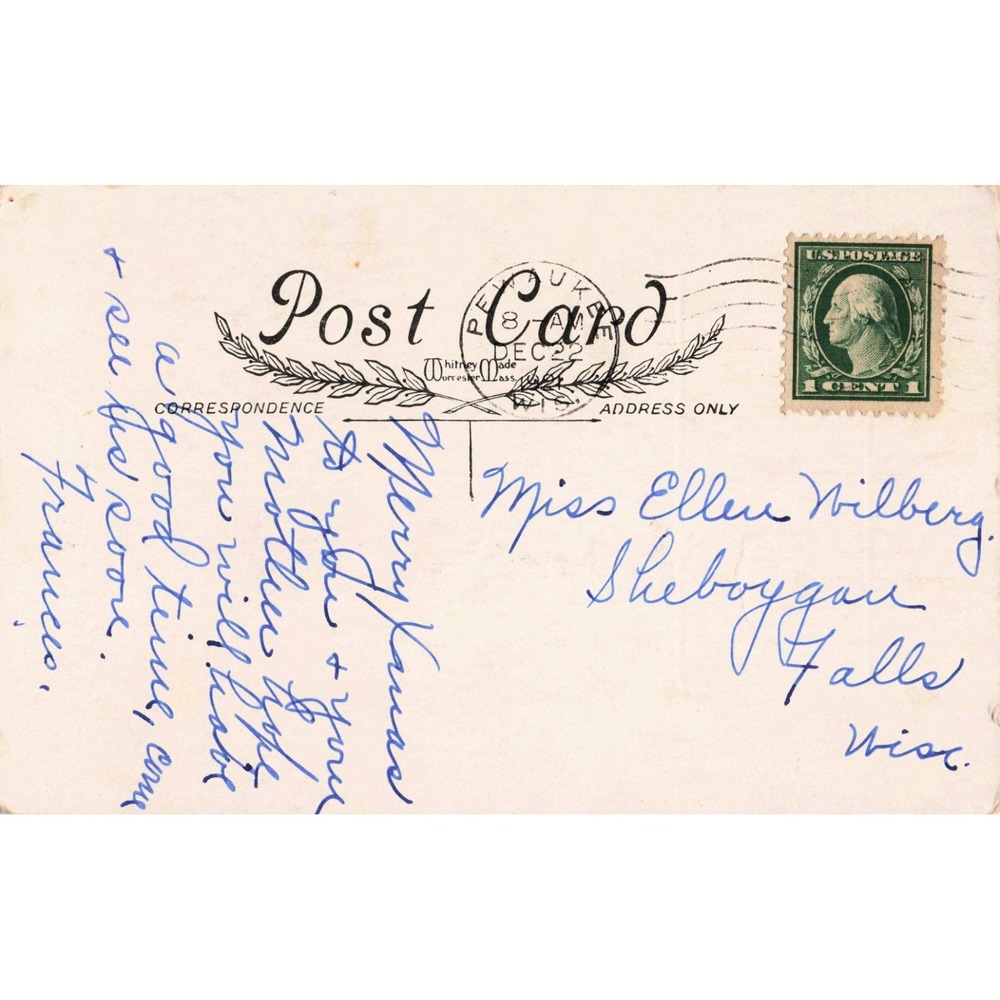 U.S. POSTAGE
1 CENT 1
PEWAUKEE
8 AM
DEC 22
1921
WIS.
Post Card
Whitney Made
Worcester Mass.
CORRESPONDENCE
ADDRESS ONLY
Merry Xmas
to you + your
Mother hope
you will have
a good time, come
+ see us soon.
Frances.
Miss Ellen Wilberg.
Sheboygan
Falls
Wisc.